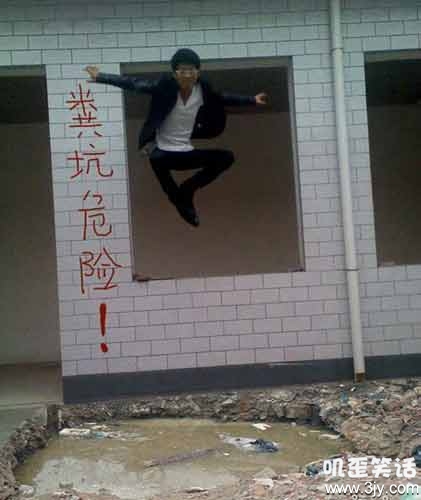 粪坑危险！
叽歪笑话
www.3jy.com